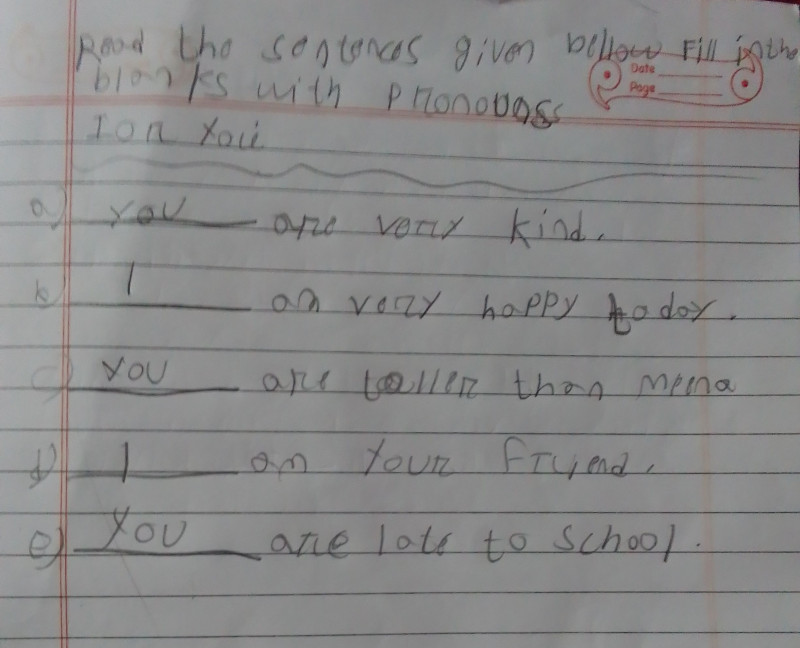 Read the sentences given bellow Fill in the
blanks with pronouns
Date
Page
I or You
a) You are very kind.
b) I am very happy today.
c) You are taller than Meena
d) I am Your Friend.
e) You are late to School.